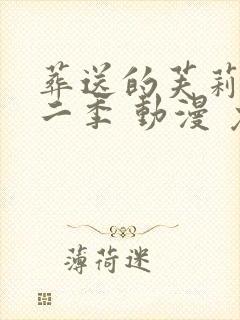 葬送的芙莉
二季 動漫
薄荷迷